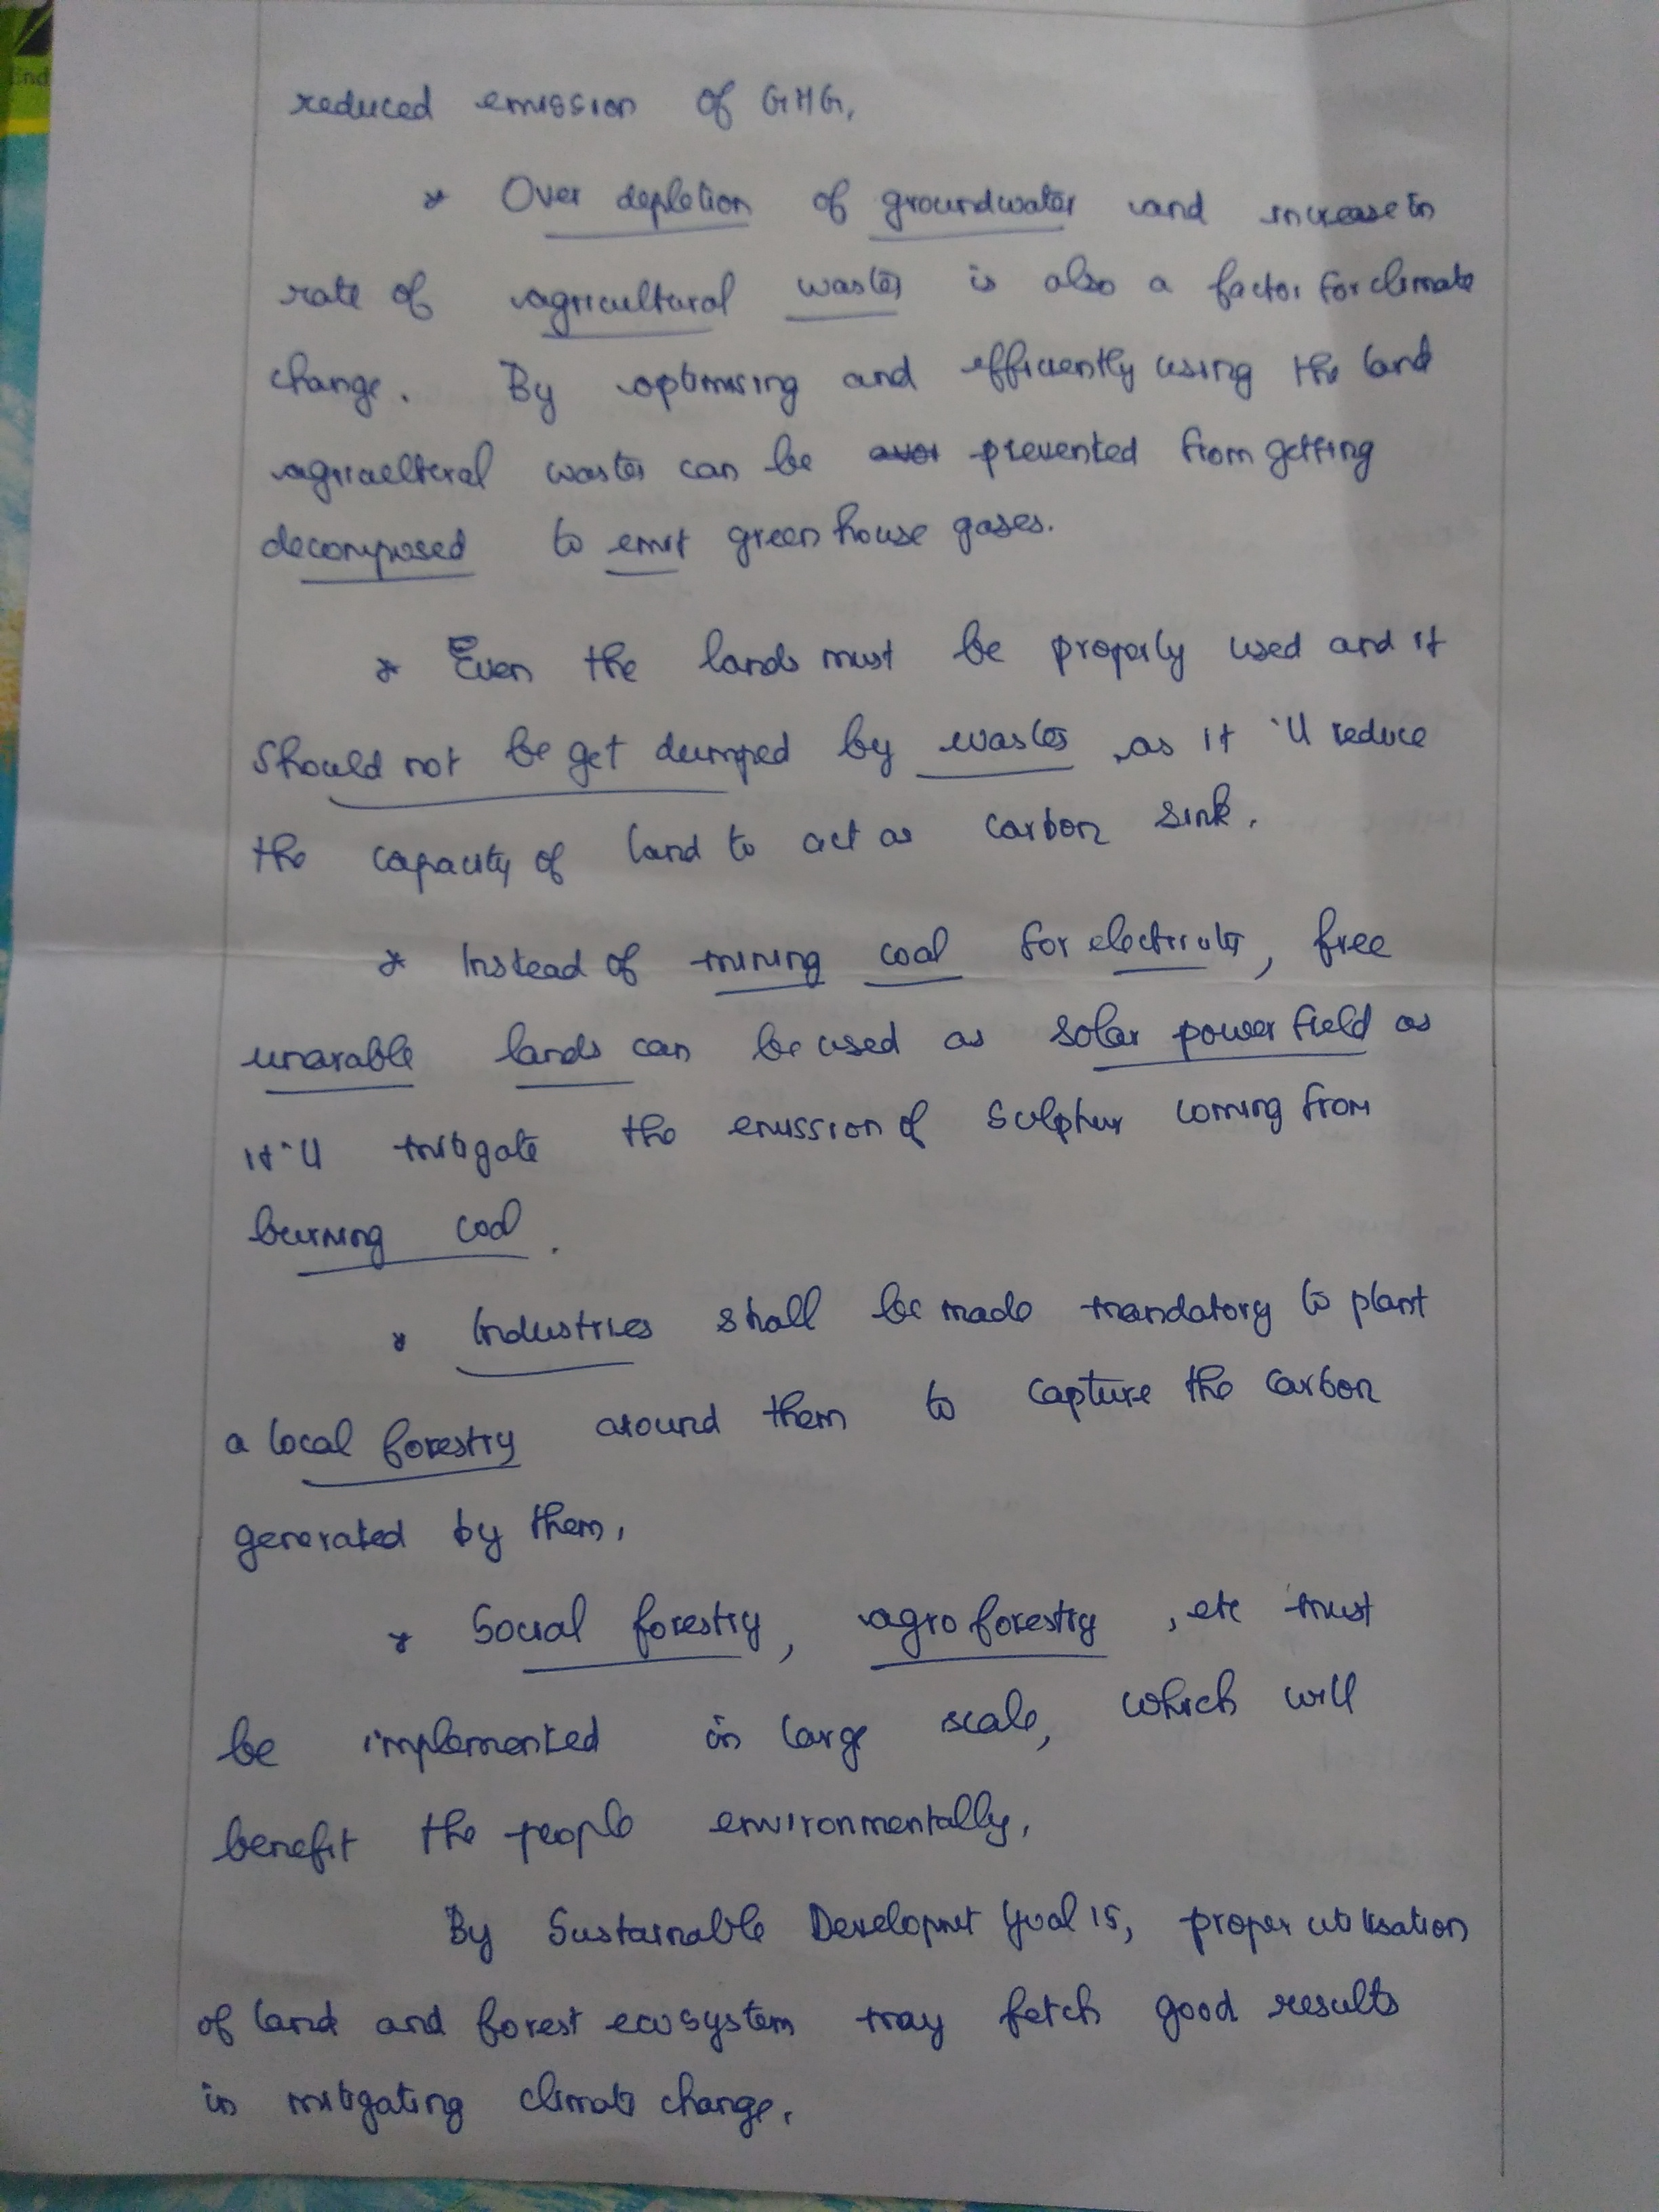 End
reduced emission of GHG.
* Over depletion of groundwater and increase in
rate of agricultural wastes is also a factor for climate
change. By optimising and efficiently using the land
agricultural wastes can be prevented from getting
decomposed to emit green house gases.
* Even the lands must be properly used and it
should not be get dumped by wastes as it 'll reduce
the capacity of land to act as carbon sink.
* Instead of mining coal for electricity, free
unarable lands can be used as solar power field as
it'll mitigate the emission of Sulphur coming from
burning coal.
* Industries shall be made mandatory to plant
a local forestry around them to capture the carbon
generated by them.
* Social forestry, agro forestry, etc must
be implemented in large scale, which will
benefit the people environmentally.
By Sustainable Developmet Goal 15, proper utilisation
of land and forest ecosystem may fetch good results
in mitigating climate change.